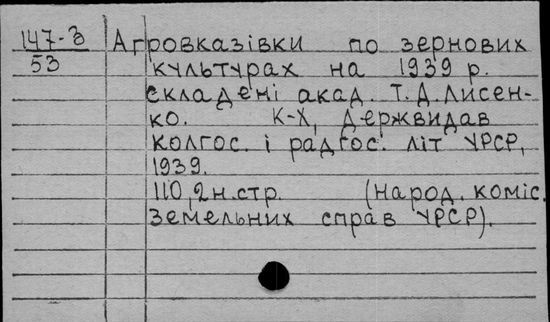 147-З Агровказівки по зернових
53 культурах на 1939 р.
складені акад. Т.Д.Лисен-
ко. К-Х, Держвидав
колгос. і радгос. літ УРСР,
1939.
110,2н.стр. (народ. коміс.
земельних справ УРСР).